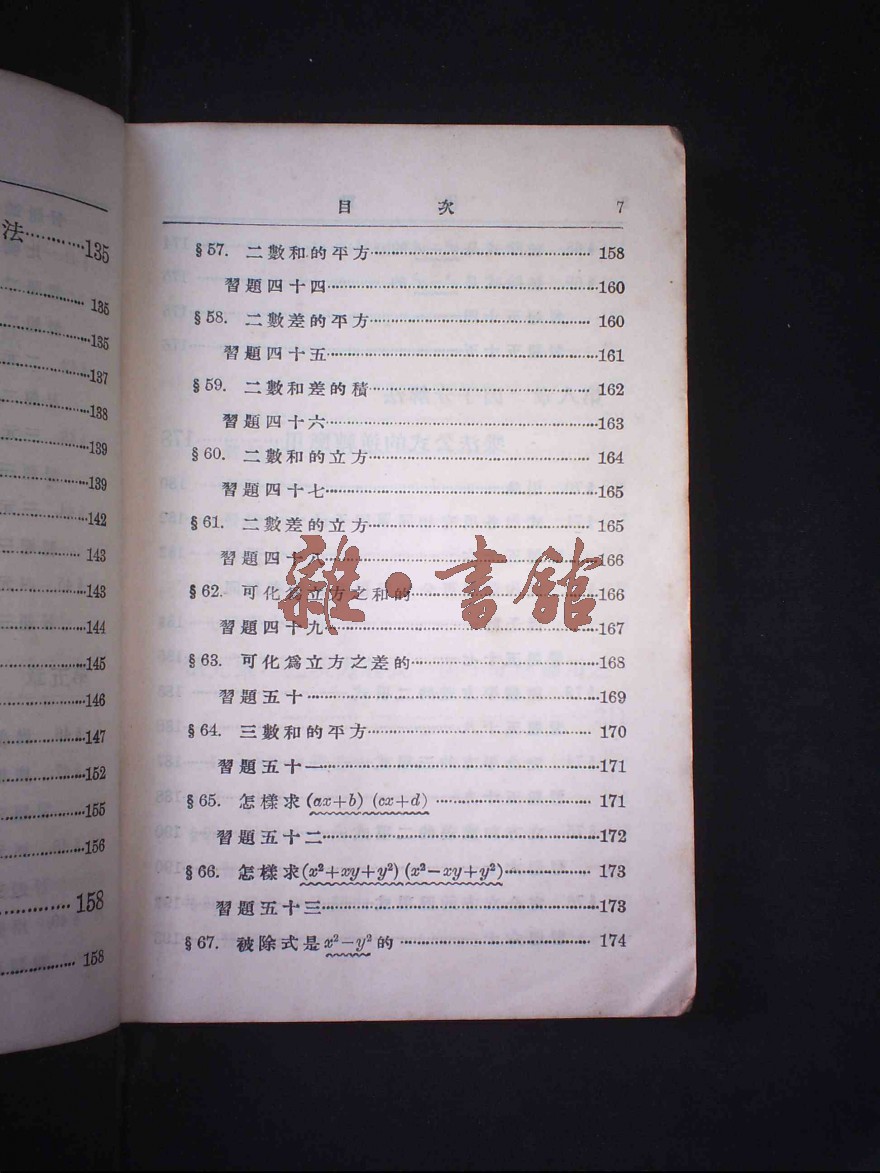 法············135
135
135
137
138
139
139
142
143
143
144
145
146
147
152
155
156
158
158
目 次 7
§57. 二數和的平方 158
習題四十四 160
§58. 二數差的平方 160
習題四十五 161
§59. 二數和差的積 162
習題四十六 163
§60. 二數和的立方 164
習題四十七 165
§61. 二數差的立方 165
習題四十八 166
§62. 可化爲立方之和的 166
習題四十九 167
§63. 可化爲立方之差的 168
習題五十 169
§64. 三數和的平方 170
習題五十一 171
§65. 怎樣求(ax+b) (cx+d) 171
習題五十二 172
§66. 怎樣求(x²+xy+y²)(x²−xy+y²) 173
習題五十三 173
§67. 被除式是x²−y²的 174
雜·書館